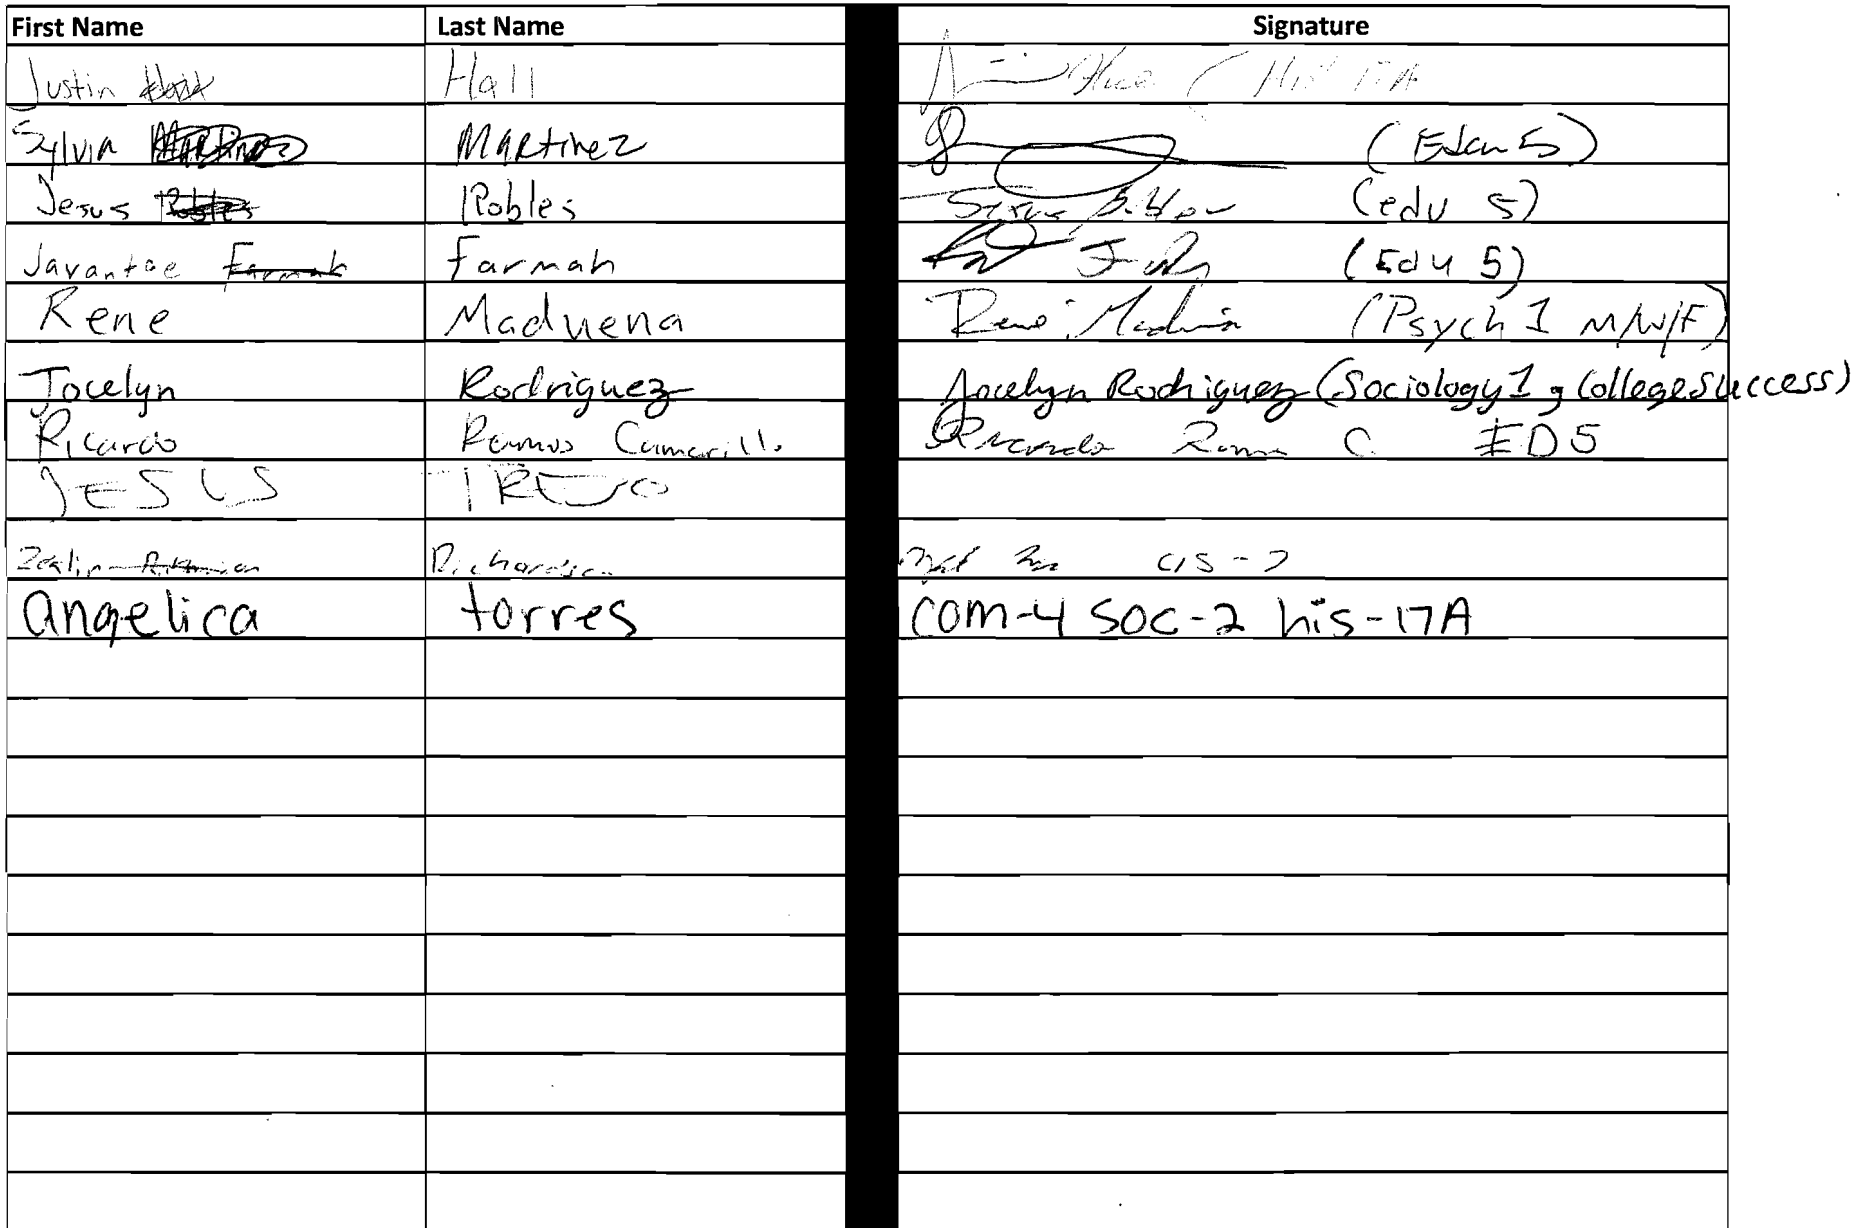 First Name Last Name Signature
Justin Hall (His 17A
Sylvia Martinez Martinez (Educ 5)
Jesus Robles Robles (edu 5)
Javantae Farmah Farmah (Edu 5)
Rene Maduena René Maduena (Psych 1 M/W/F)
Jocelyn Rodriguez Jocelyn Rodriguez (Sociology 1 g College Success)
Ricardo Ramos Camarillo Ricardo C ED 5
JESUS TREJO
Richardson CIS-2
angelica torres COM-4 SOC-2 his-17A